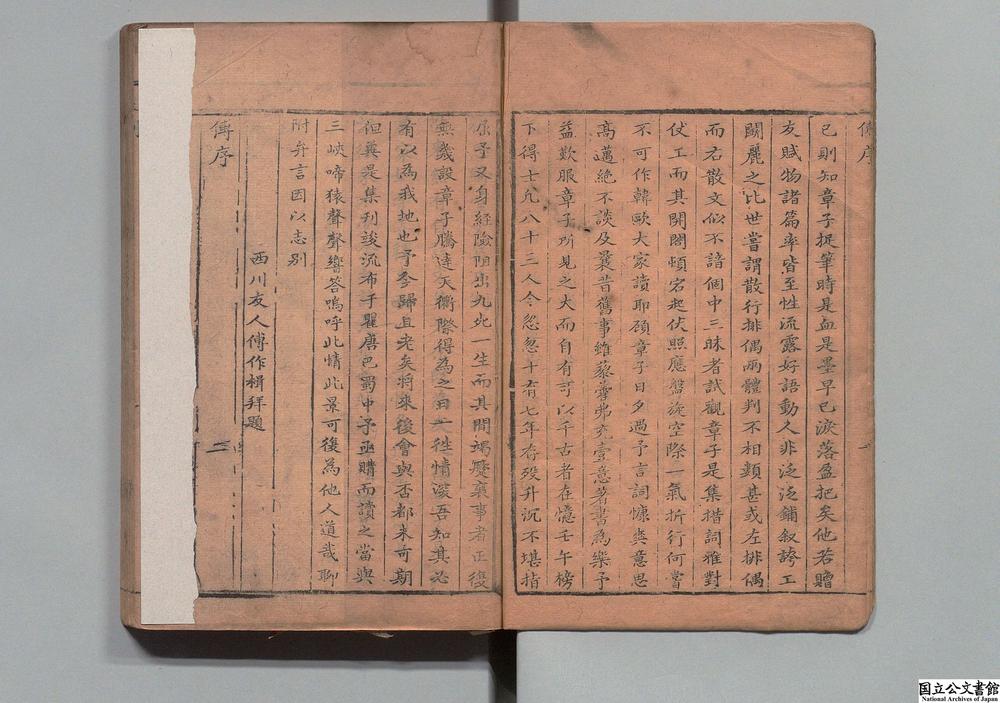 傅序
已則知章子捉筆時是血是墨早已淚落盈把矣他若贈
友賦物諸篇率皆至性流露好語動人非泛泛鋪叙誇工
鬭麗之比世嘗謂散行排偶兩體判不相類甚或左排偶
而右散文似不諳個中三昧者試觀章子是集措詞雅對
仗工而其開闔頓宕起伏照應盤旋空際一氣折行何嘗
不可作韓歐大家讀耶顧章子日夕過予言詞慷爽意思
高邁絶不談及曩昔舊事雖藜藿弗充壹意著書為樂予
益歎服章子所見之大而自有可以千古者在憶壬午榜
下得士凢八十三人今忽忽十有七年存殁升沉不堪指
屈予又身經險阻出九死一生而其間竭蹷襄事者正復
無幾設章子騰達天衢際得為之日一徃情深吾知其必
有以為我地也予今歸且老矣將來後會與否都未可期
但冀是集刊竣流布于瞿唐巴蜀中予亟購而讀之當與
三峽啼猿聲聲響答嗚呼此情此景可復為他人道哉聊
附弁言因以志别
西川友人傅作楫拜題
傅序
二